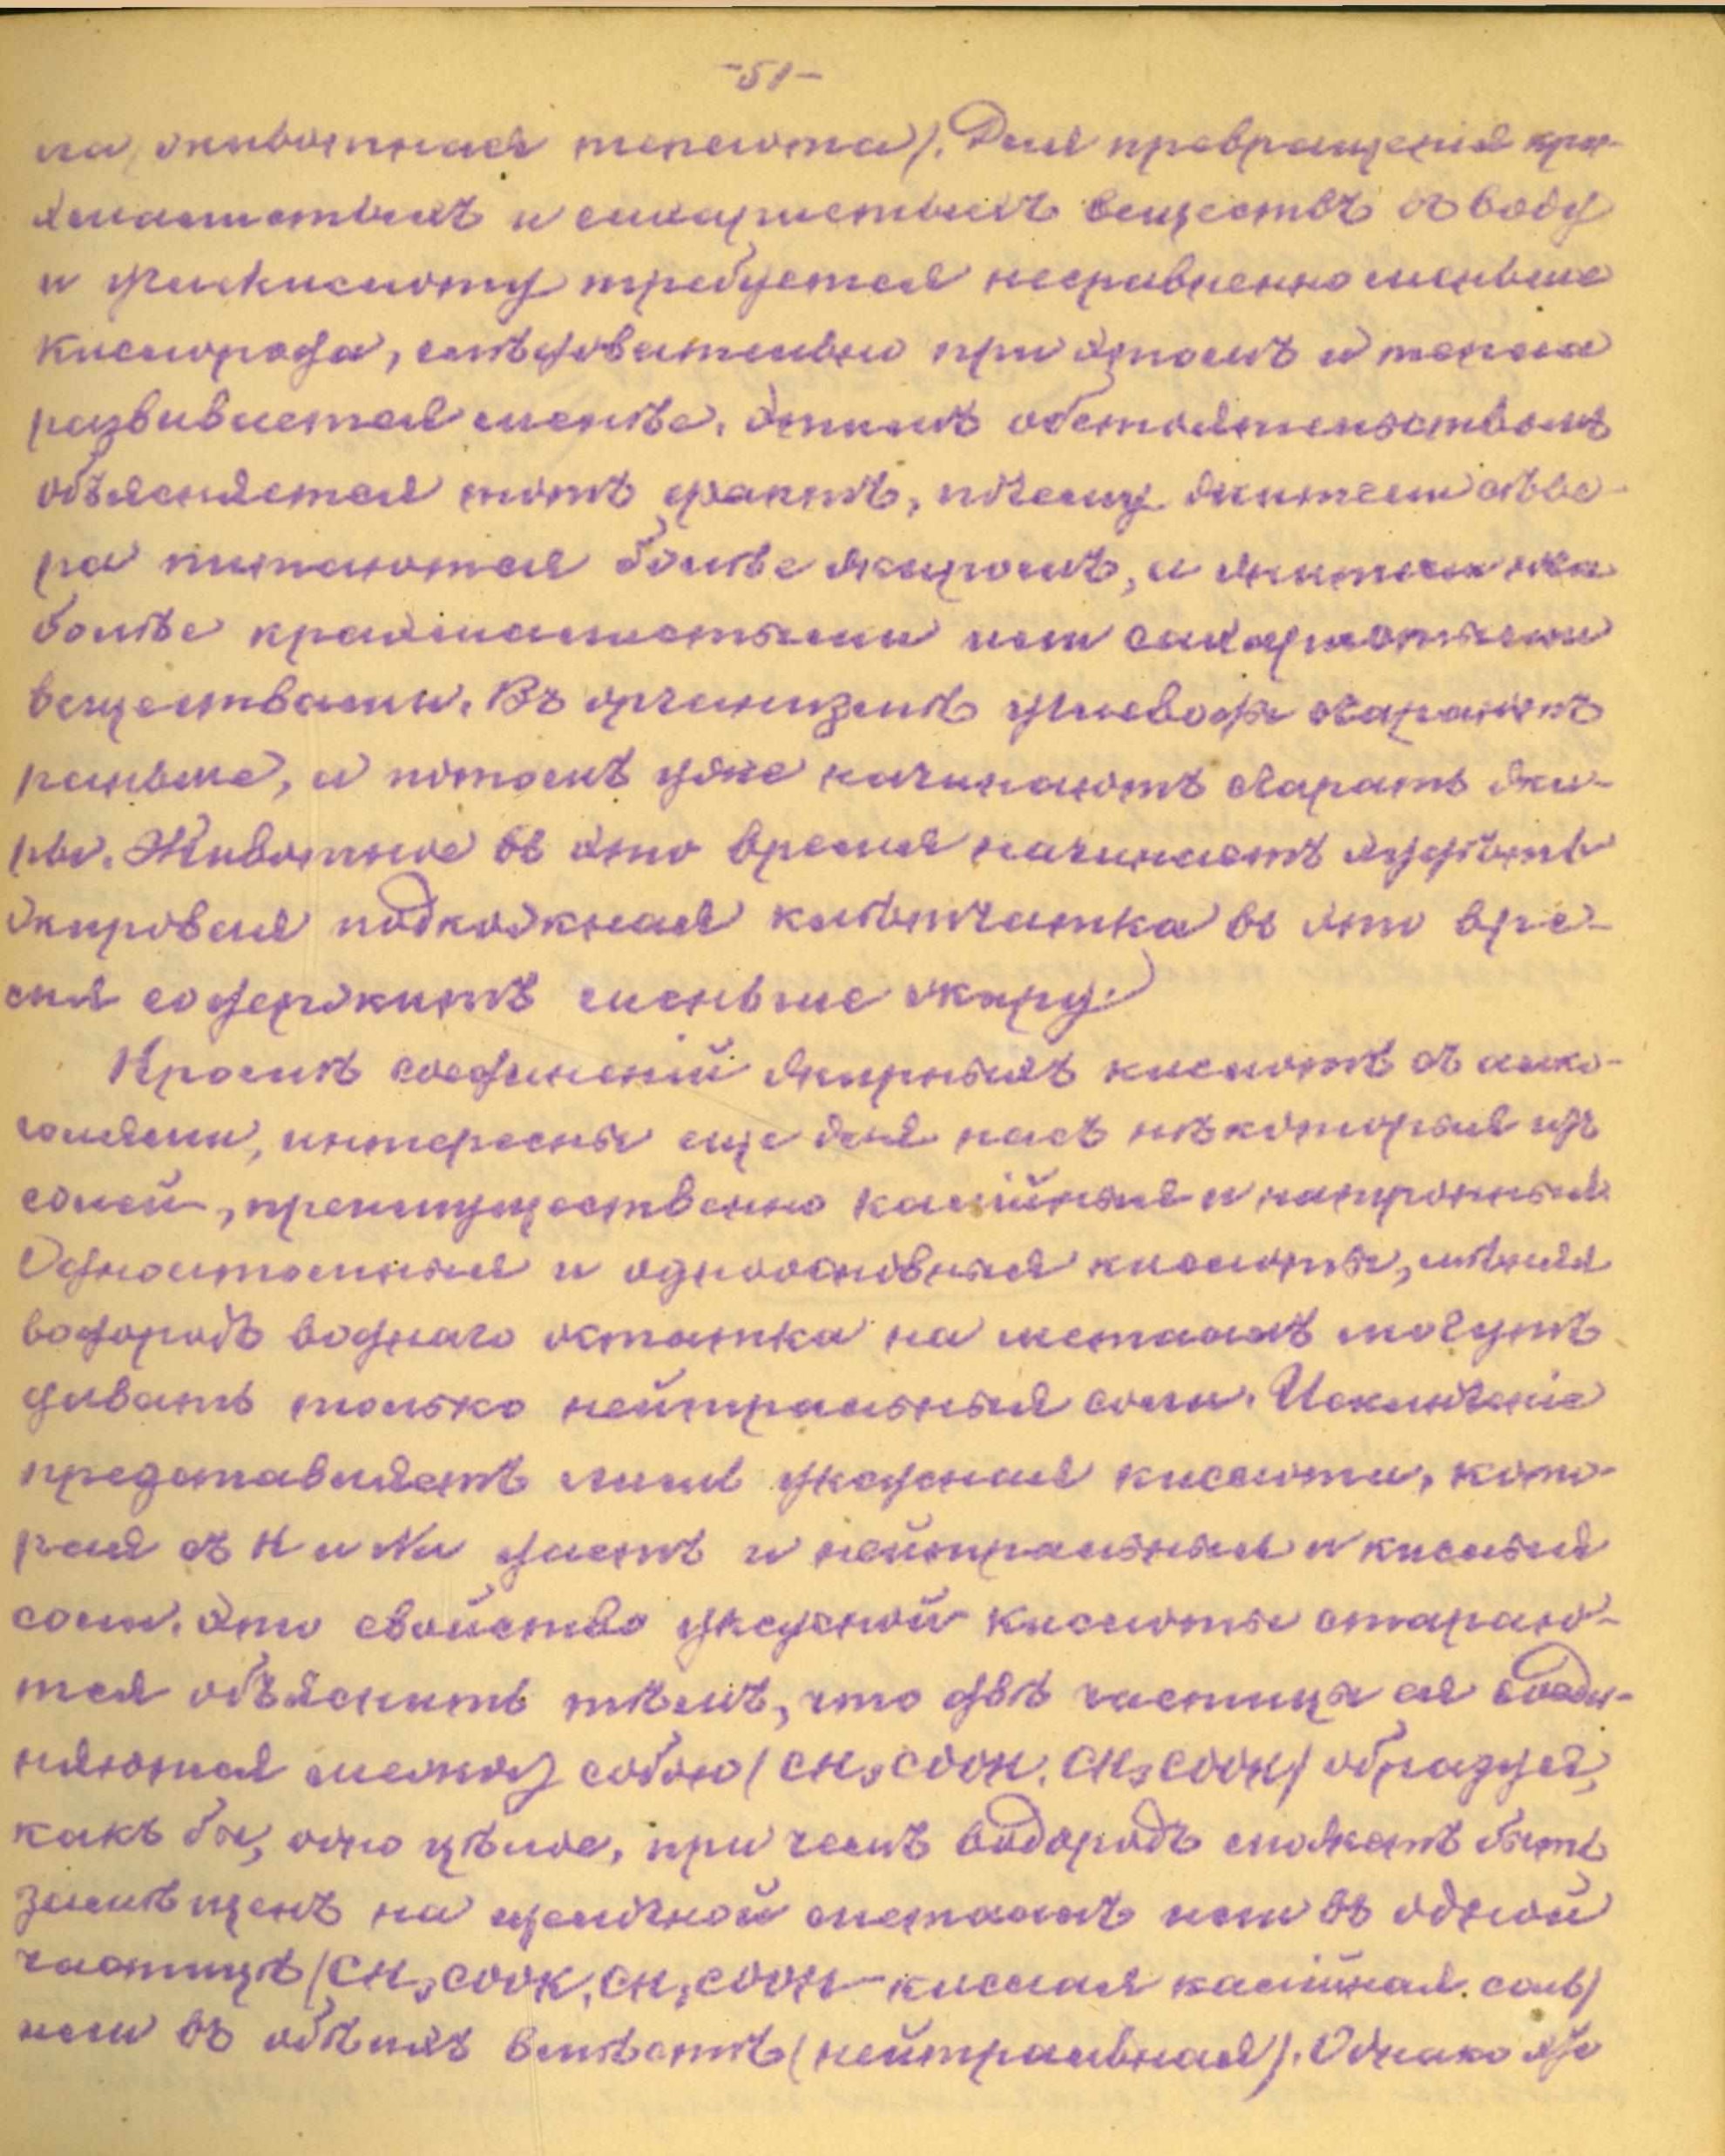 -51-
ла, животная теплота). Для превращенія кра-
хмалистыхъ и сахаристыхъ веществъ въ воду
и углекислоту требуется несравненно меньше
кислорода, слѣдовательно при этомъ и тепла
развивается менѣе. Этимъ обстоятельствомъ
объясняется тотъ фактъ, почему жители сѣве-
ра питаются болѣе жиромъ, а жители юга
болѣе крахмалистыми или сахаристыми
веществами. Въ организмѣ углеводы сгараютъ
раньше, а потомъ уже начинаютъ сгарать жи-
ры. Животное въ это время начинаетъ худѣть
жировая подкожная клѣтчатка въ это вре-
мя содержитъ меньше жиру.)
Кромѣ соединеній жирныхъ кислотъ съ алко-
голями, интересны еще для насъ нѣкоторыя изъ
солей, преимущественно калійныя и натронныя.
Одноатомныя и одноосновныя кислоты, мѣняя
водородъ воднаго остатка на металлъ могутъ
давать только нейтральныя соли. Исключеніе
представляетъ лишь уксусная кислота, кото-
рая съ K и Na даетъ и нейтральныя и кислыя
соли. Это свойство уксусной кислоты стараю-
тся объяснить тѣмъ, что двѣ частицы ея соеди-
няются между собою (CH₃COOH, CH₃COOH) образуя,
какъ бы, одно цѣлое, при чемъ водородъ можетъ быть
замѣщенъ на щелочной металлъ или въ одной
частицѣ (CH₃COOK, CH₃COOH - кислая калійная соль)
или въ обѣихъ вмѣстѣ (нейтральная). Однако